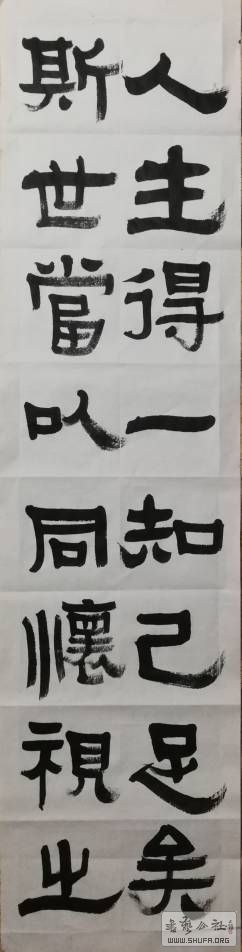 人生得一知己足矣
斯世當以同懷視之
書藝公社
WWW.SHUFA.ORG